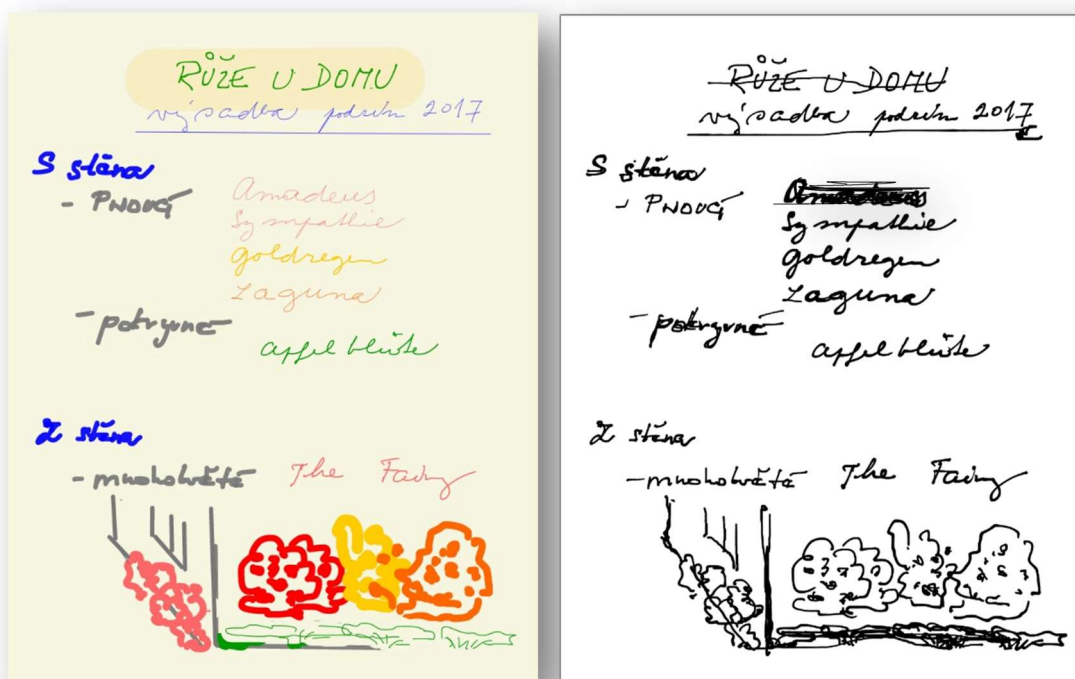 RŮŽE U DOMU
výsadba podzim 2017
S stěna
- PNOUCÍ
Amadeus
Sympathie
Goldregen
Laguna
- pokryvné
apfelblüte
Z stěna
- mnohokvěté The Fairy
RŮŽE U DOMU
výsadba podzim 2017
S stěna
- PNOUCÍ
Amadeus
Sympathie
Goldregen
Laguna
- pokryvné
apfelblüte
Z stěna
- mnohokvěté The Fairy